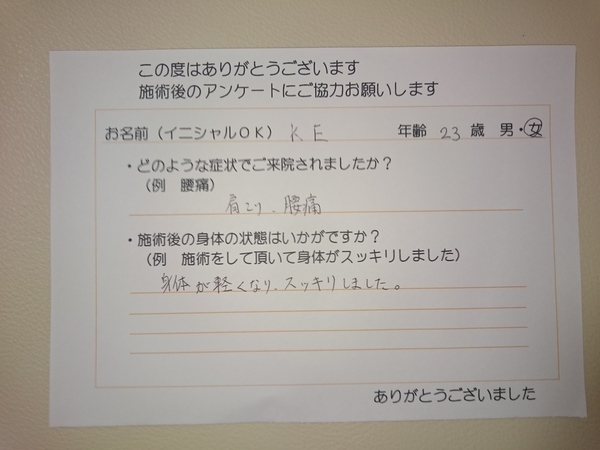 この度はありがとうございます
施術後のアンケートにご協力お願いします
お名前（イニシャルOK） K E 年齢 23 歳 男・女
・どのような症状でご来院されましたか？
（例 腰痛）
肩こり、腰痛
・施術後の身体の状態はいかがですか？
（例 施術をして頂いて身体がスッキリしました）
身体が軽くなり、スッキリしました。
ありがとうございました